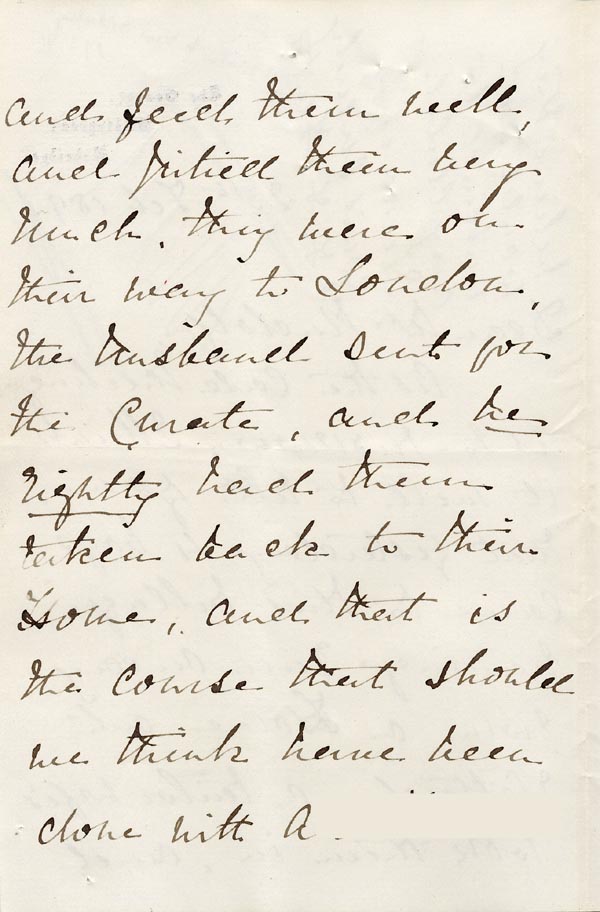 and feed them well,
and pitied them very
much, they were on
their way to London,
the husband sent for
the Curate, and he
rightly had them
taken back to their
Home, and that is
the course that should
we think have been
done with A.